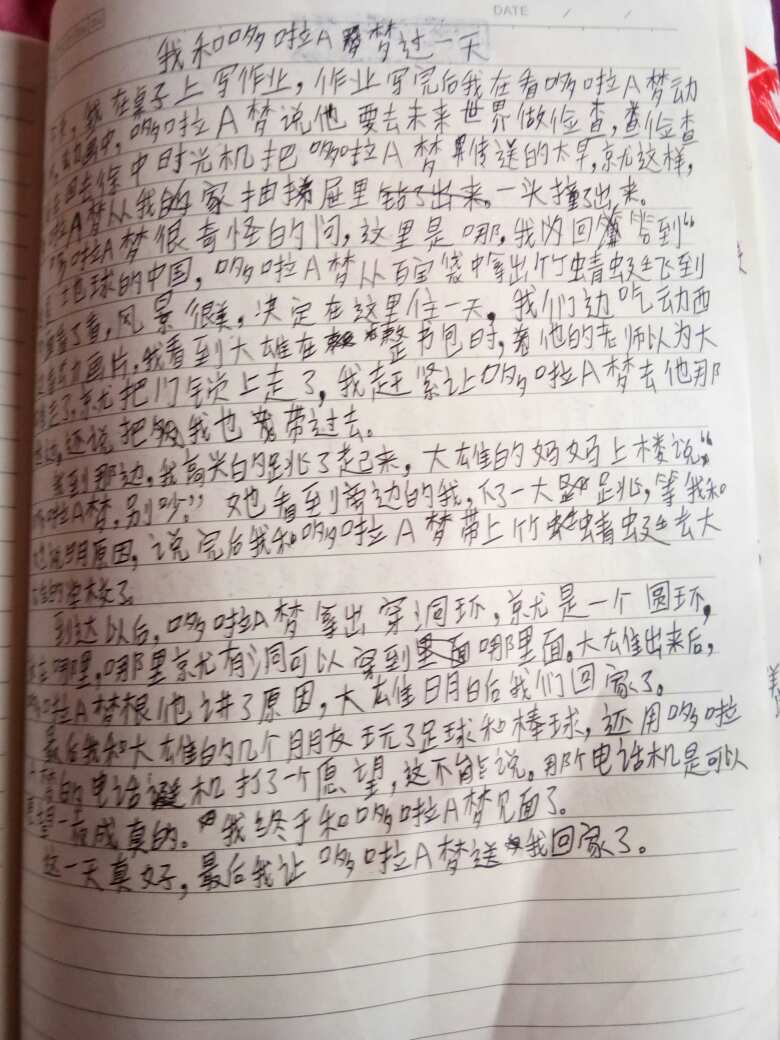 DATE / /
我和哆啦A梦过一天
天,我在桌子上写作业,作业写完后我在看哆啦A梦动
画中,哆啦A梦说他要去未来世界做俭查,查俭查
回去途中时光机把哆啦A梦传送的太早,就这样,
啦A梦从我的家抽掦屉里出来。一头撞出来。
哆啦A梦很奇怪的问,这里是哪,我内回答到“
地球的中国,哆啦A梦从百宝袋中拿出竹蜻蜓飞到
看了看,风景很美,决定在这里住一天,我们边吃动西
边看动画片,我看到大雄在整书包时,他的老师以为大
走了,就把门锁上走了,我赶紧让哆啦A梦去他那
边,还说把我也带过去。
到那边,我高兴的跳了起来,大雄的妈妈上楼说“
哆啦A梦,别吵。”她看到旁边的我,下了一大跳,等我和
她说明原因,说完后我和哆啦A梦带上竹蜻蜓去大
雄的学校了。
到达以后,哆啦A梦拿出穿洞环,就是一个圆环,
哪里,哪里就有洞可以穿到哪里面。大雄出来后,
哆啦A梦根他讲了原因,大雄明白后我们回家了。
最后我和大雄的几个朋友玩了足球和棒球,还用哆啦
的电话机打了一个愿望,这不能说。那个电话机是可以
成真的。我终于和哆啦A梦见面了。
这一天真好,最后我让哆啦A梦送我回家了。